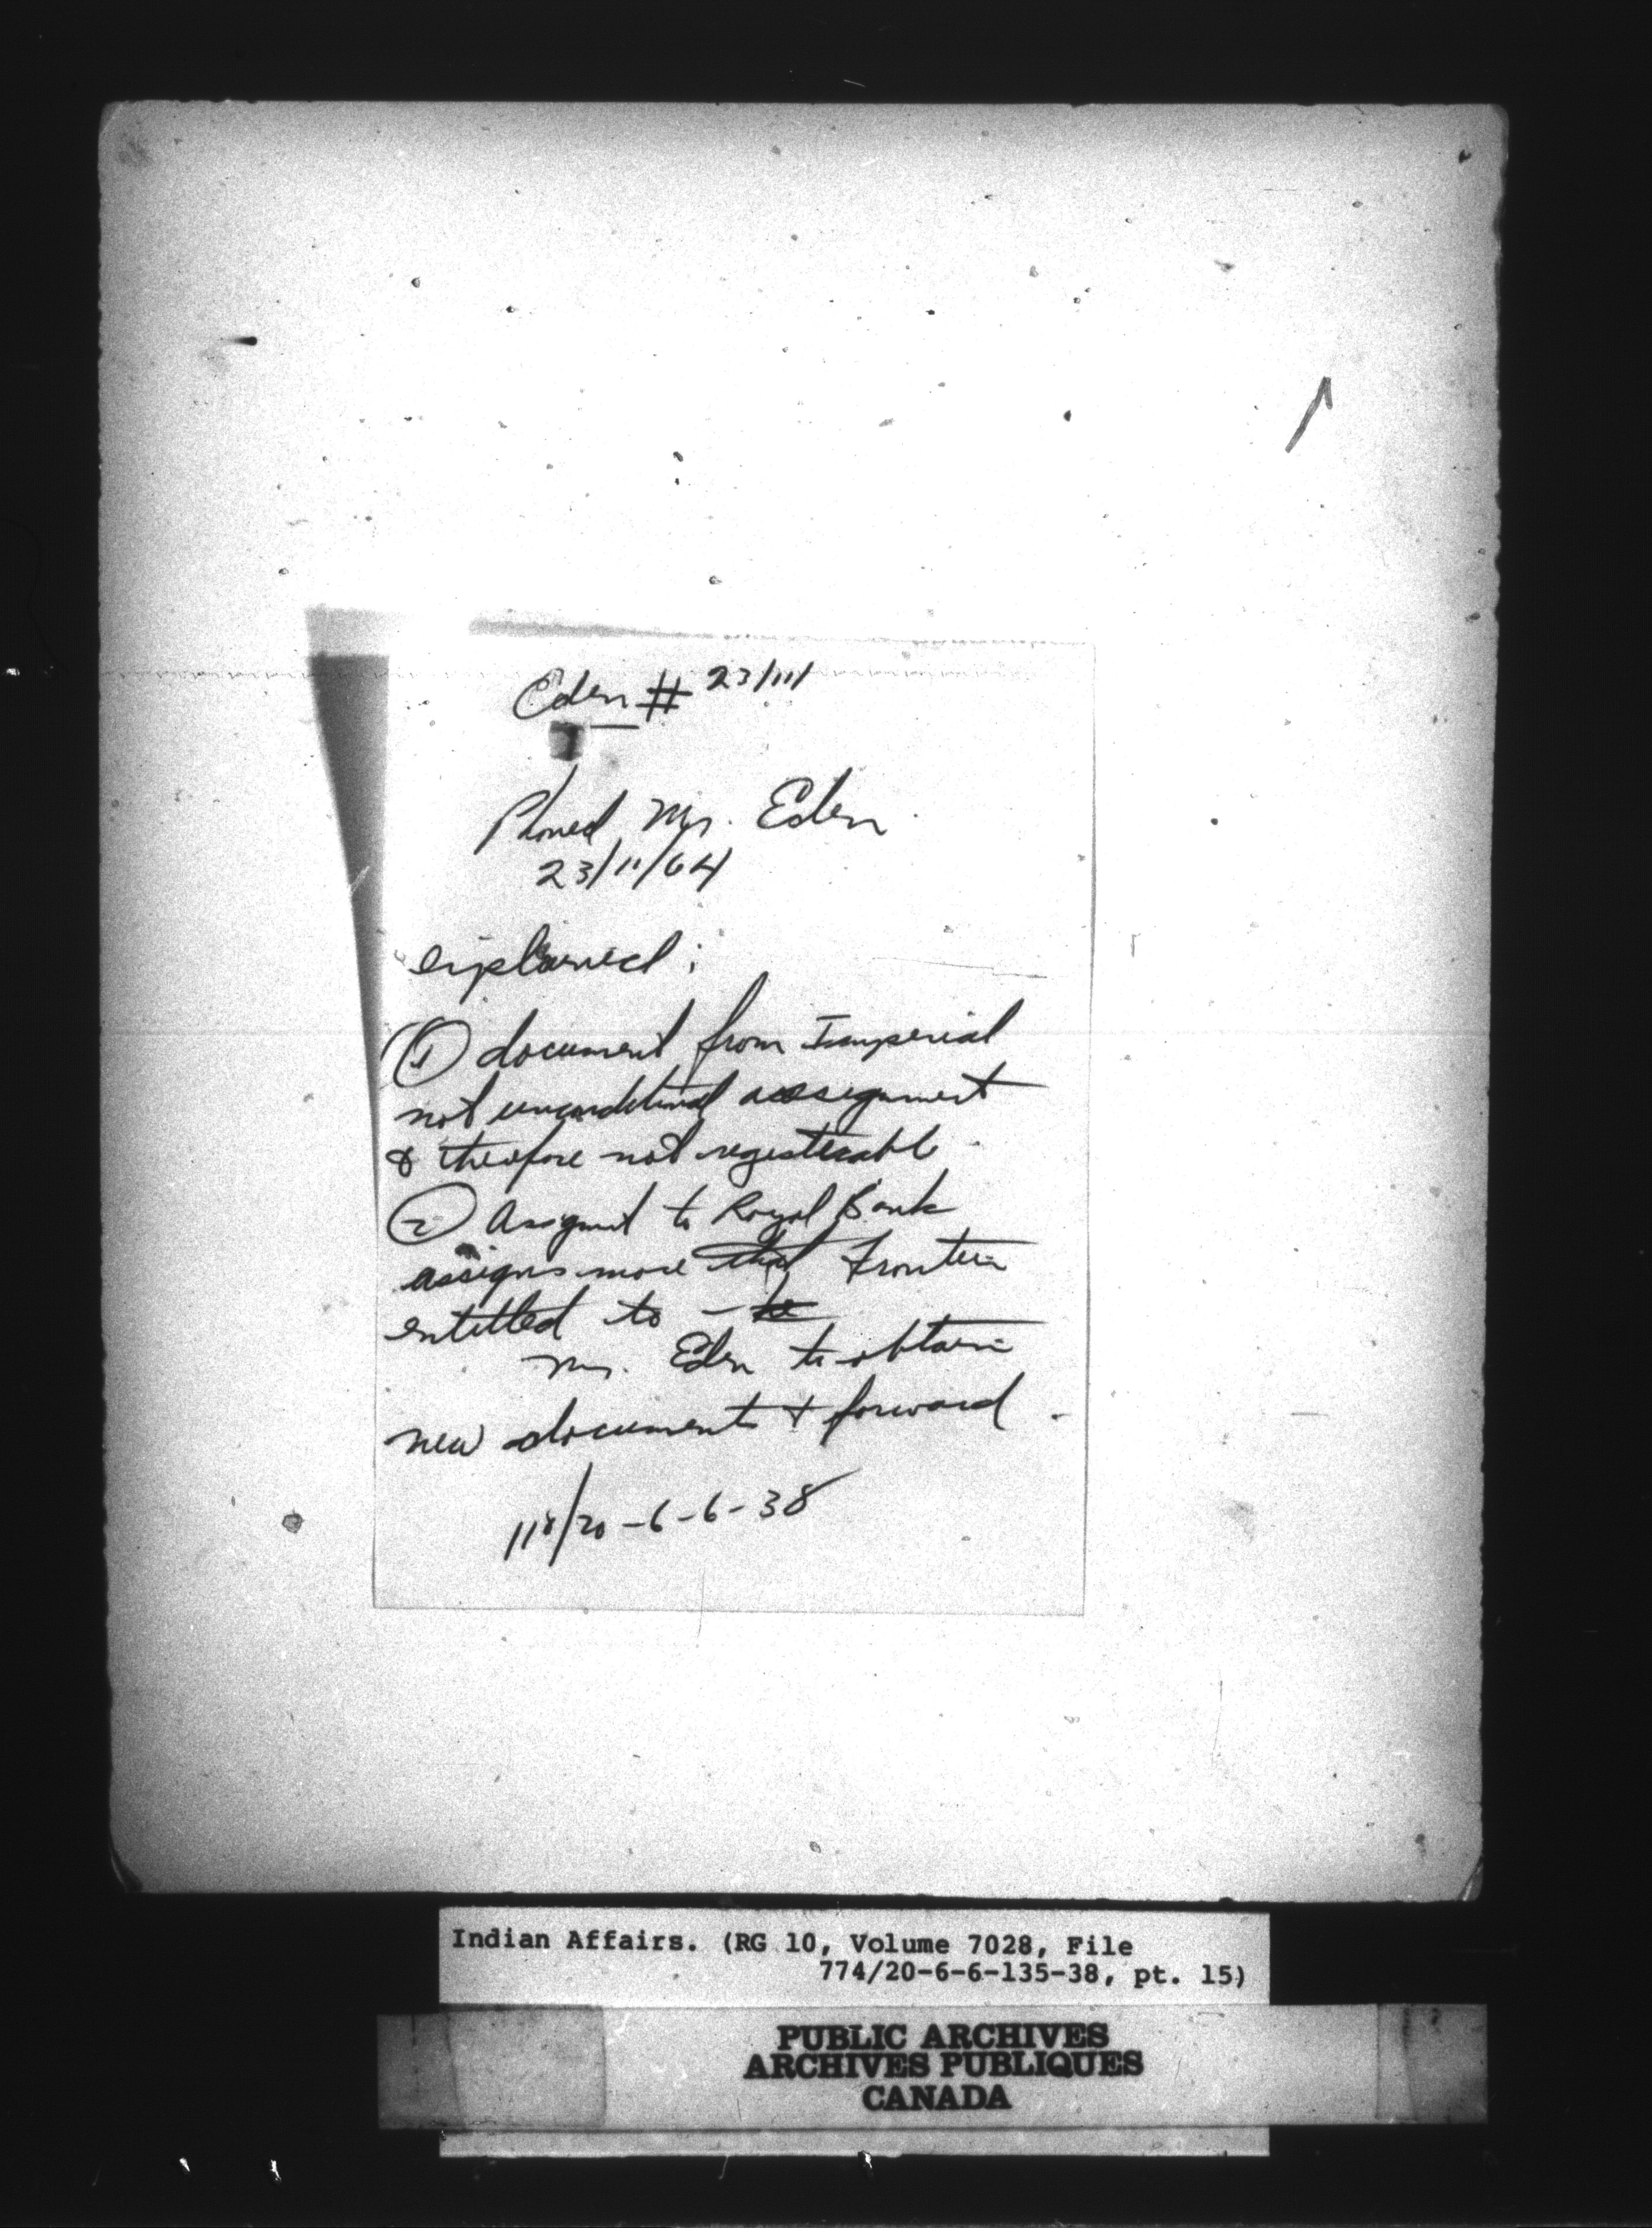 Eden # 23/11/
Phoned Mr. Eden
23/11/64
explained:
① document from Imperial
not unconditional assignment
& therefore not registerable
② Assignmt to Royal Bank
assigns more that Frontier
entitled to -
Mr. Eden to obtain
new documents + forward.
118/20-6-6-38
Indian Affairs. (RG 10, Volume 7028, File
774/20-6-6-135-38, pt. 15)
PUBLIC ARCHIVES
ARCHIVES PUBLIQUES
CANADA